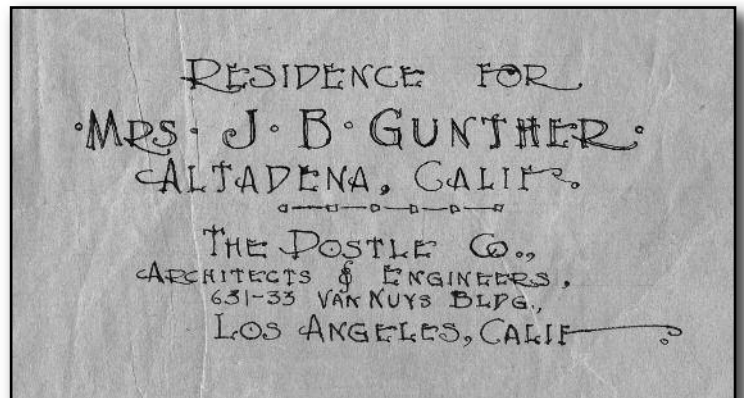 RESIDENCE FOR
·MRS· J· B· GUNTHER·
ALTADENA, CALIF.
THE POSTLE CO.,
ARCHITECTS & ENGINEERS,
631-33 VAN NUYS BLDG.,
LOS ANGELES, CALIF